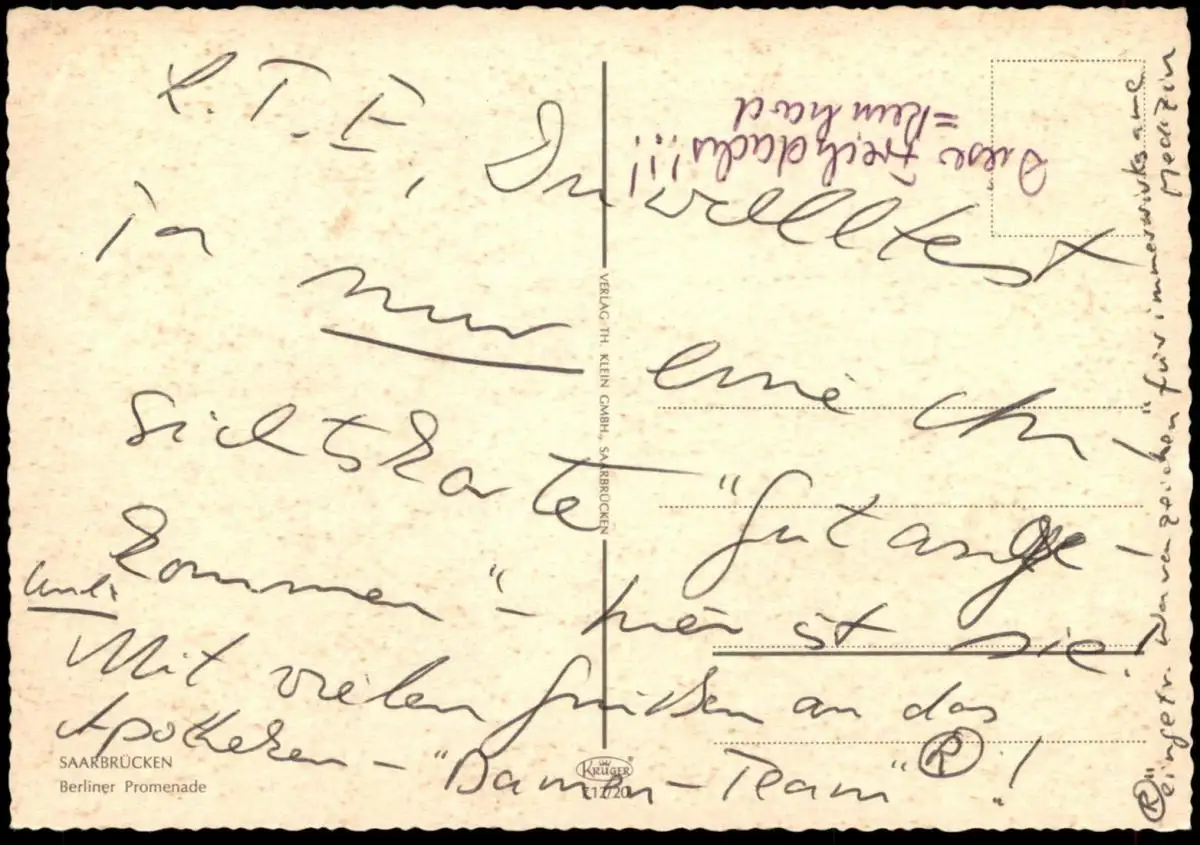 L. T. F., Du wolltest
ja nur eine An-
sichtskarte "Gut ange-
kommen" - hier ist sie!
und:
Mit vielen Grüßen an das
Apotheken - "Damen-Team" ® !
Diese Frechdachs!!!
= Reinhard
® "eingetr. Warenzeichen" für immerwirksame
Medizin
VERLAG TH. KLEIN GMBH., SAARBRÜCKEN
KRÜGER
SAARBRÜCKEN
Berliner Promenade